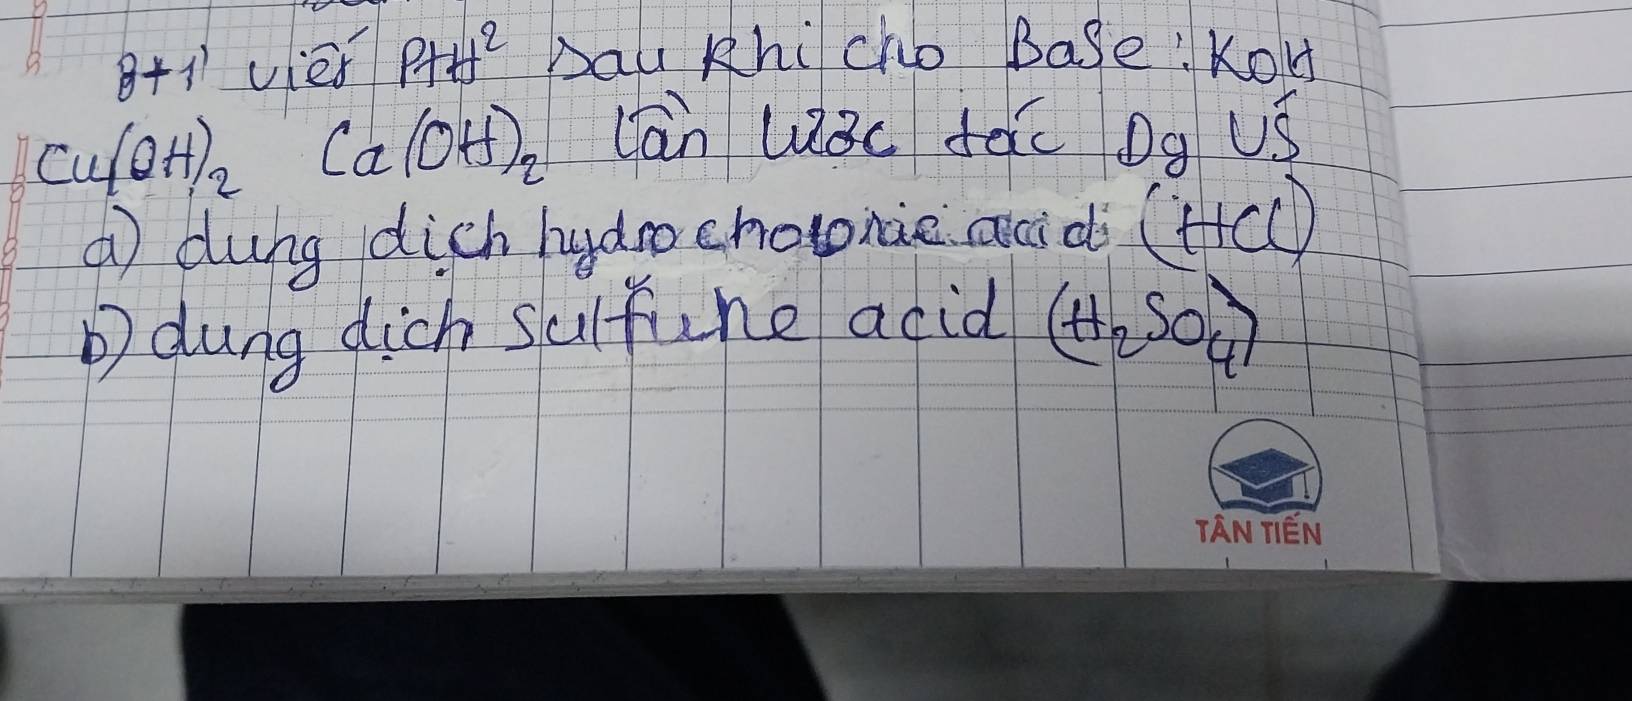 B+1 viết PTHH² sau khi cho Base: KOH
Cu(OH)₂ Ca(OH)₂ lần lược tác Dg VS
a) dung dịch hydrochotoric acid (HCl)
b) dung dịch sulfuhe acid (H₂SO₄)
TÂN TIẾN